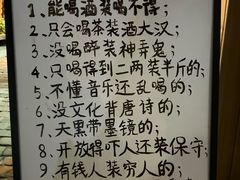 1、能喝酒装喝不得;
2、只会喝茶装酒大汉;
3、没喝醉装神弄鬼;
4、只喝得到二两装半斤的;
5、不懂音乐还乱喝的;
6、没文化背唐诗的;
7、天黑带墨镜的;
8、开放得吓人还装保守;
9、有钱人装穷人的;